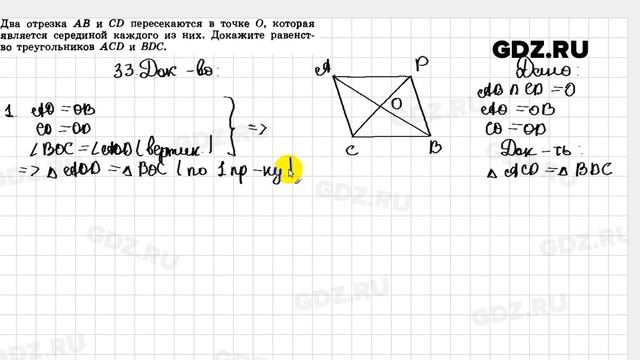 Два отрезка AB и CD пересекаются в точке O, которая
является серединой каждого из них. Докажите равенст-
во треугольников ACD и BDC.
GDZ.RU
33. Док-во:
1. AO = OB
CO = OD
∠BOC = ∠AOD (вертик.)
} =>
=> △ AOD = △ BOC (по 1 пр-ку)
A
D
O
C
B
Дано:
AB ∩ CD = O
AO = OB
CO = OD
Док-ть:
△ ACD = △ BDC
GDZ.RU
GDZ.RU
GDZ.RU
GDZ.RU
GDZ.RU